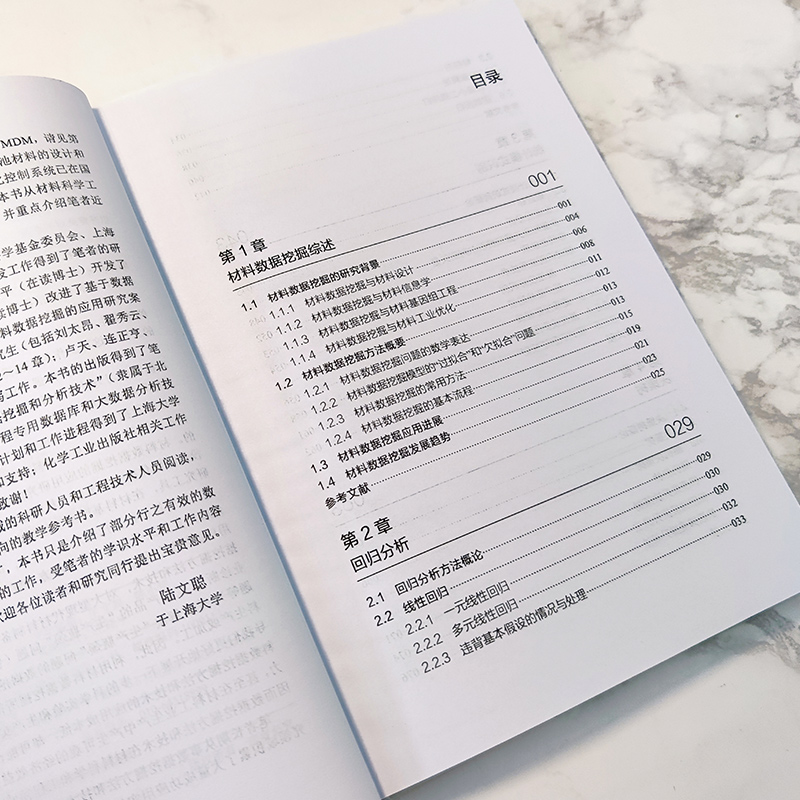 MDM，请见第
池材料的设计和
化控制系统已在国
本书从材料科学工
并重点介绍笔者近
学基金委员会、上海
发工作得到了笔者的研
平（在读博士）开发了
读博士）改进了基于数据
料数据挖掘的应用研究案
究生（包括刘太昂、翟秀云、
2～14章）；卢天、连正亨、
稿工作。本书的出版得到了笔
据挖掘和分析技术”（隶属于北
程专用数据库和大数据分析技
计划和工作进程得到了上海大学
和支持；化学工业出版社相关工作
致谢！
域的科研人员和工程技术人员阅读，
向的教学参考书。
，本书只是介绍了部分行之有效的数
的工作，受笔者的学识水平和工作内容
欢迎各位读者和研究同行提出宝贵意见。
陆文聪
于上海大学
目录
第 1 章 001
材料数据挖掘综述
1.1 材料数据挖掘的研究背景 001
1.1.1 材料数据挖掘与材料设计 004
1.1.2 材料数据挖掘与材料信息学 006
1.1.3 材料数据挖掘与材料基因组工程 008
1.1.4 材料数据挖掘与材料工业优化 011
1.2 材料数据挖掘方法概要 012
1.2.1 材料数据挖掘问题的数学表达 013
1.2.2 材料数据挖掘模型的“过拟合”和“欠拟合”问题 013
1.2.3 材料数据挖掘的常用方法 015
1.2.4 材料数据挖掘的基本流程 019
1.3 材料数据挖掘应用进展 021
1.4 材料数据挖掘发展趋势 023
参考文献 025
第 2 章 029
回归分析
2.1 回归分析方法概论 029
2.2 线性回归 030
2.2.1 一元线性回归 030
2.2.2 多元线性回归 032
2.2.3 违背基本假设的情况与处理 033